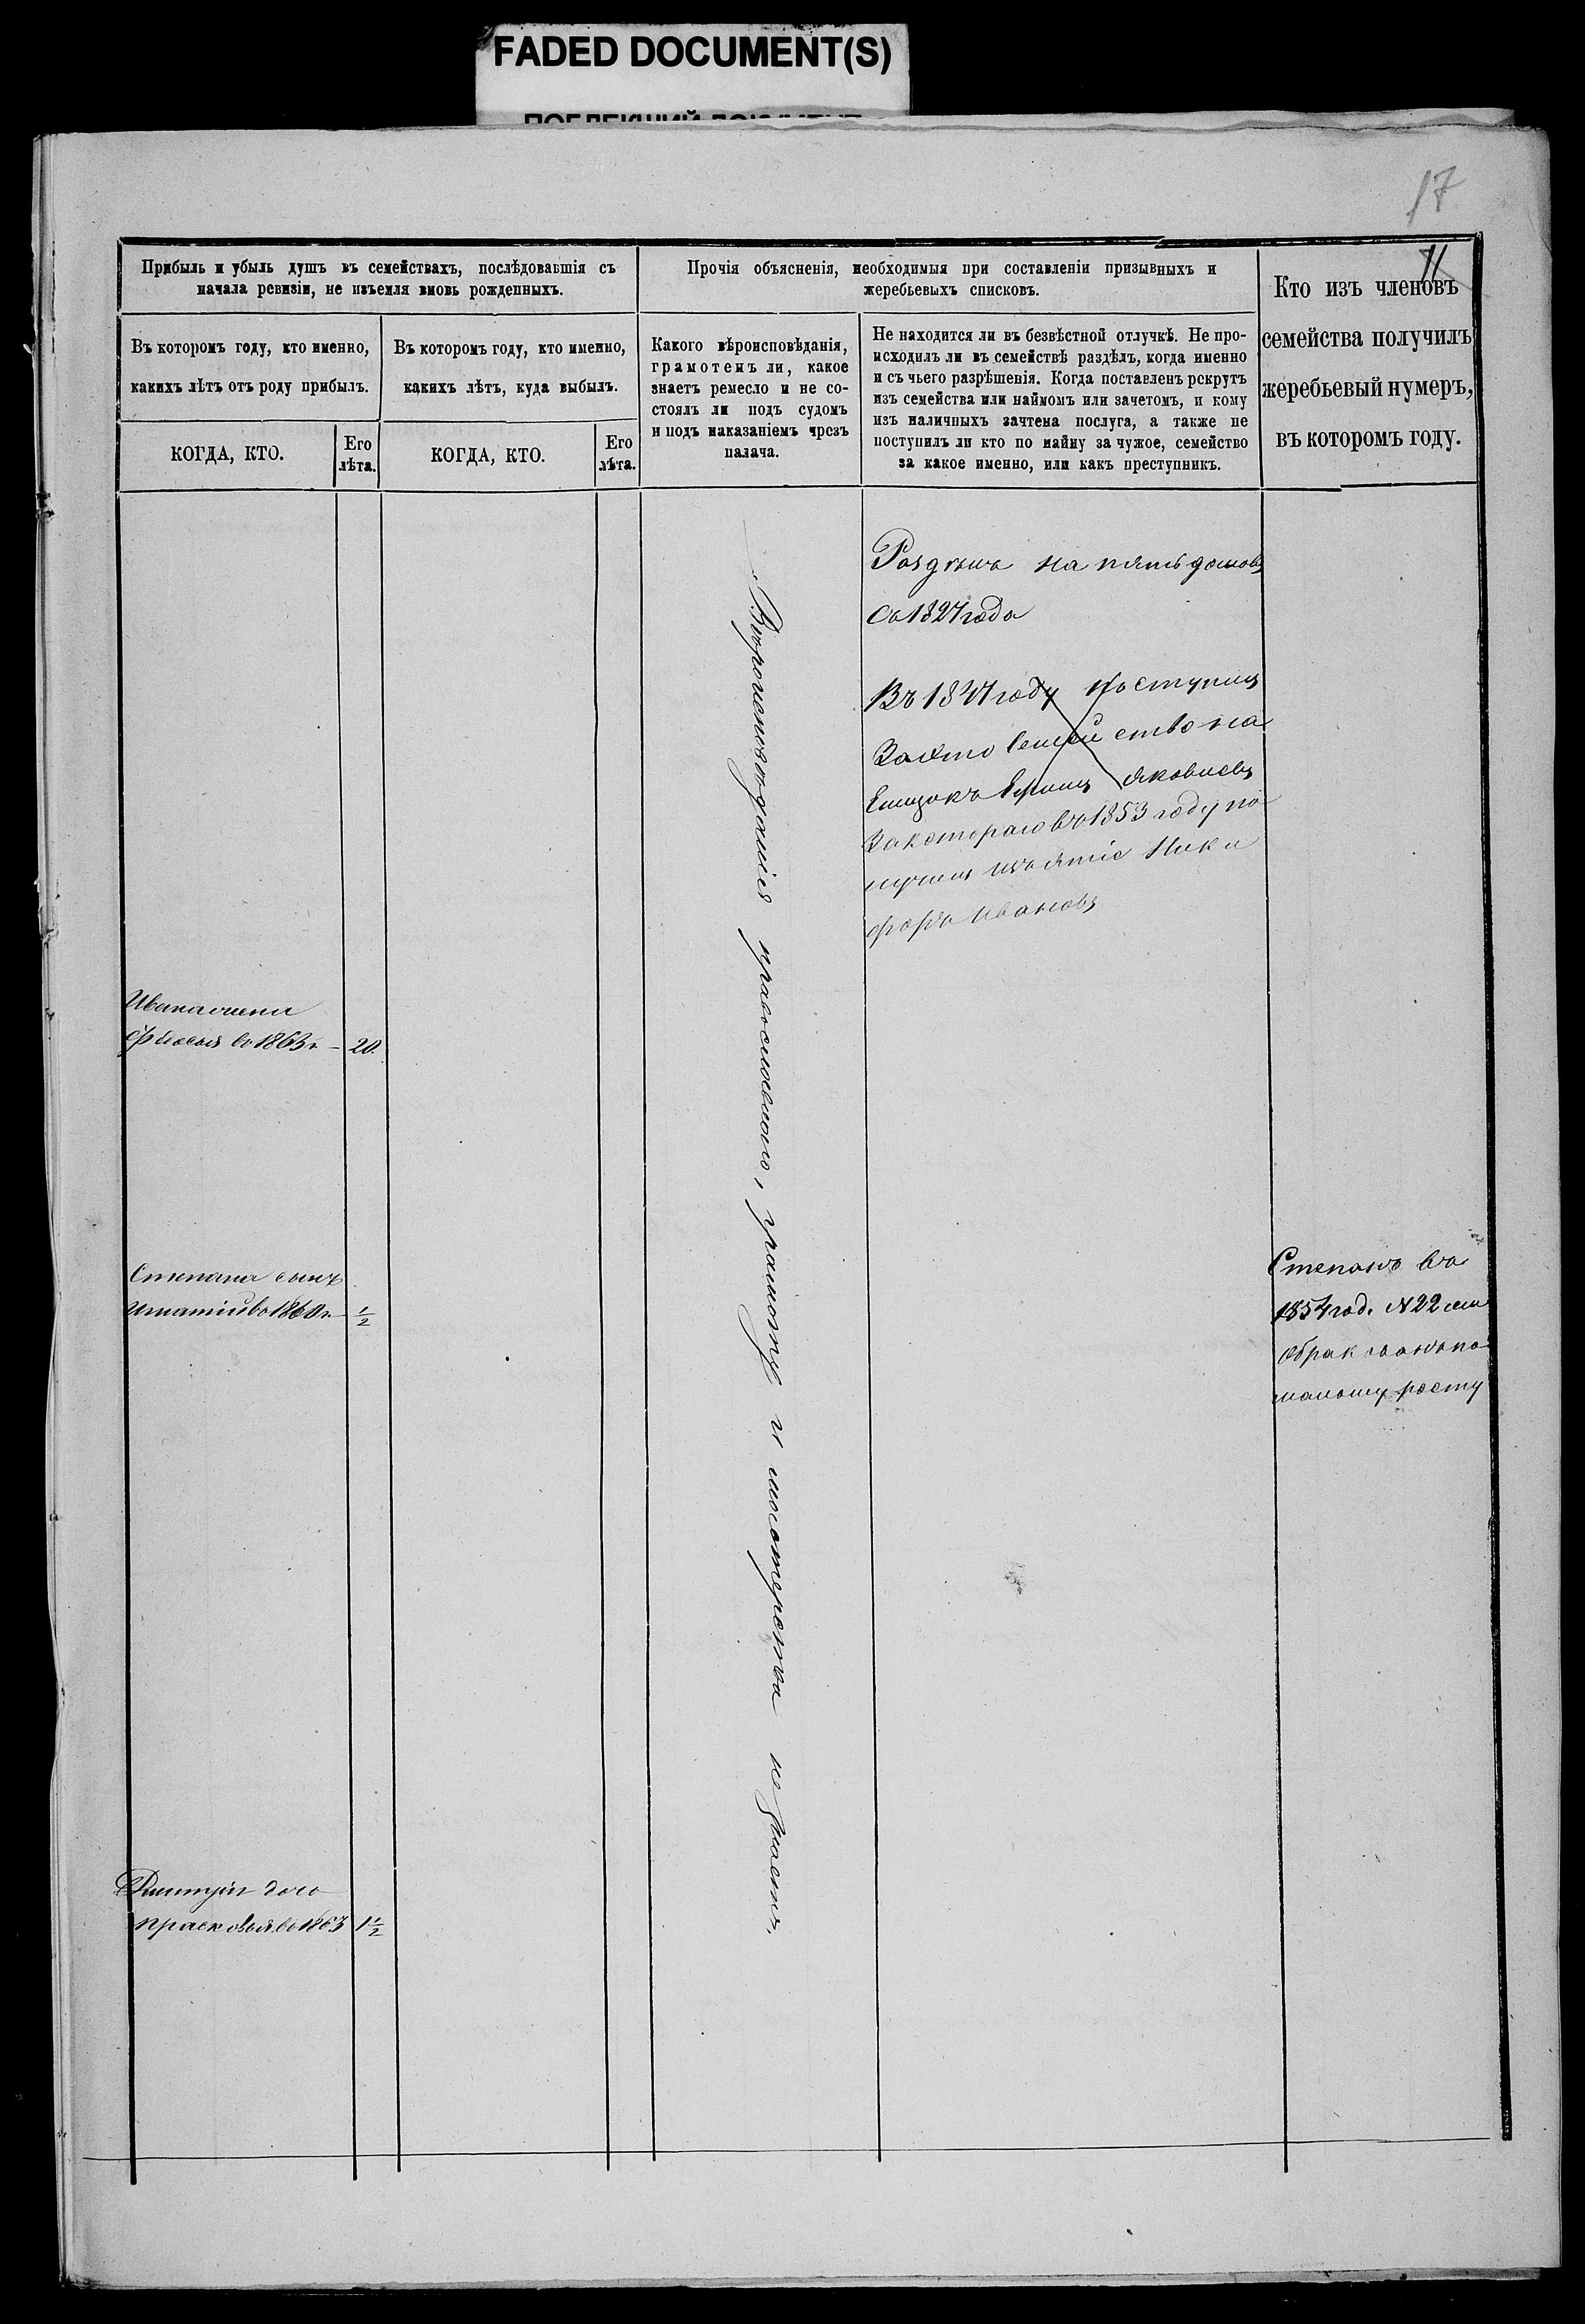 FADED DOCUMENT(S)
17
11
Прибыль и убыль душъ въ семействахъ, послѣдовавшія съ
начала ревизіи, не изъемля вновь рожденныхъ.
Прочія объясненія, необходимыя при составленіи призывныхъ и
жеребьевыхъ списковъ.
Кто изъ членовъ
семейства получилъ
жеребьевый нумеръ,
въ которомъ году.
Въ которомъ году, кто именно,
какихъ лѣтъ отъ роду прибылъ.
Въ которомъ году, кто именно,
какихъ лѣтъ, куда выбылъ.
Какого вѣроисповѣданія,
грамотенъ ли, какое
знаетъ ремесло и не со-
стоялъ ли подъ судомъ
и подъ наказаніемъ чрезъ
палача.
Не находится ли въ безвѣстной отлучкѣ. Не про-
исходилъ ли въ семействѣ раздѣлъ, когда именно
и съ чьего разрѣшенія. Когда поставленъ рекрутъ
изъ семейства или наймомъ или зачетомъ, и кому
изъ наличныхъ зачтена послуга, а также не
поступилъ ли кто по найму за чужое, семейство
за какое именно, или какъ преступникъ.
КОГДА, КТО.
Его
лѣта.
КОГДА, КТО.
Его
лѣта.
на пять домовъ
съ 1827 года
Въ году поступилъ
За это семейство на
Яковлевъ
За котораго въ 1853 году по
лучилъ Ники
форъ Ивановъ
Вѣроисповѣданія православнаго, грамоту и мастерства не знаетъ.
Ивана жена
въ 1863 г. 20.
Степана сынъ
Игнатій въ г. 1/2
Степанъ въ
1854 год. N 22
Обракованъ по
малому росту
Дмитрія дочь
Прасковья въ 1863 1 1/2